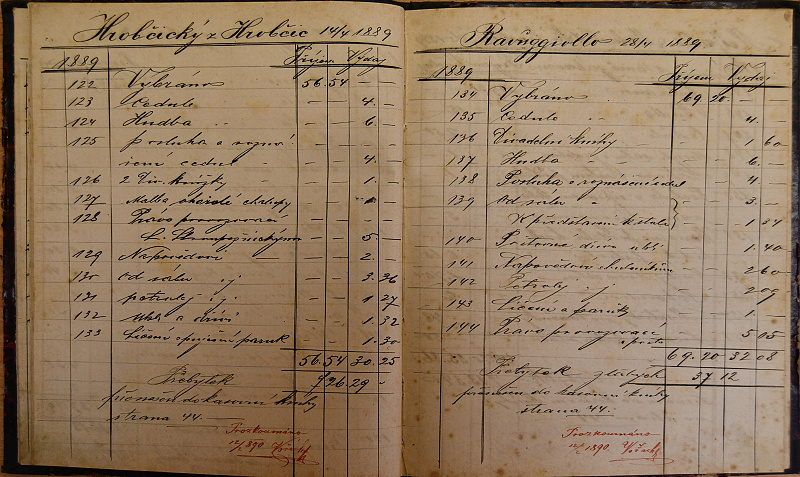 Hrobčický z Hrobčic 14/4 1889
1889 Příjem Výdaj
122 Vybráno 56.54 —
123 Cedule — 4. —
124 Hudba — 6. —
125 posluha a roznáš
ení cedul — 4. —
126 2 div. knížky — 1. —
127 Malba
128 Právo provozovací
L. Stroupežnickýmu — 5. —
129 Napovědovi — 2. —
130 od sálu — 3. 36
131 petrolej — 1 27
132 Uhlí a dříví — 1. 32
133 Líčení a půjčení paruk — 1. 30
56.54 30.25
Přebytek 26.29
přenesen do kasovní knihy
strana 44.
Prozkoumáno
12/1 1890
Ravuggiollo 28/4 1889
1889 Příjem Výdaj
134 Vybráno 69 20 —
135 Cedule 4. —
136 Divadelní knihy 1 60
137 Hudba 6. —
138 Posluha a roznášení cedul 4 —
139 Od sálu 3. —
K představení 1 34
140 dříví uhlí 1. 40
141 Napovědovi 2 60
142 Petrolej 2 09
143 Líčení a paruky 1. —
144 Právo provozovací
5 05
69. 20 32 08
Přebytek zlatých 37 12
přenesen do kasovní knihy
strana 44.
Prozkoumáno
12/1 1890